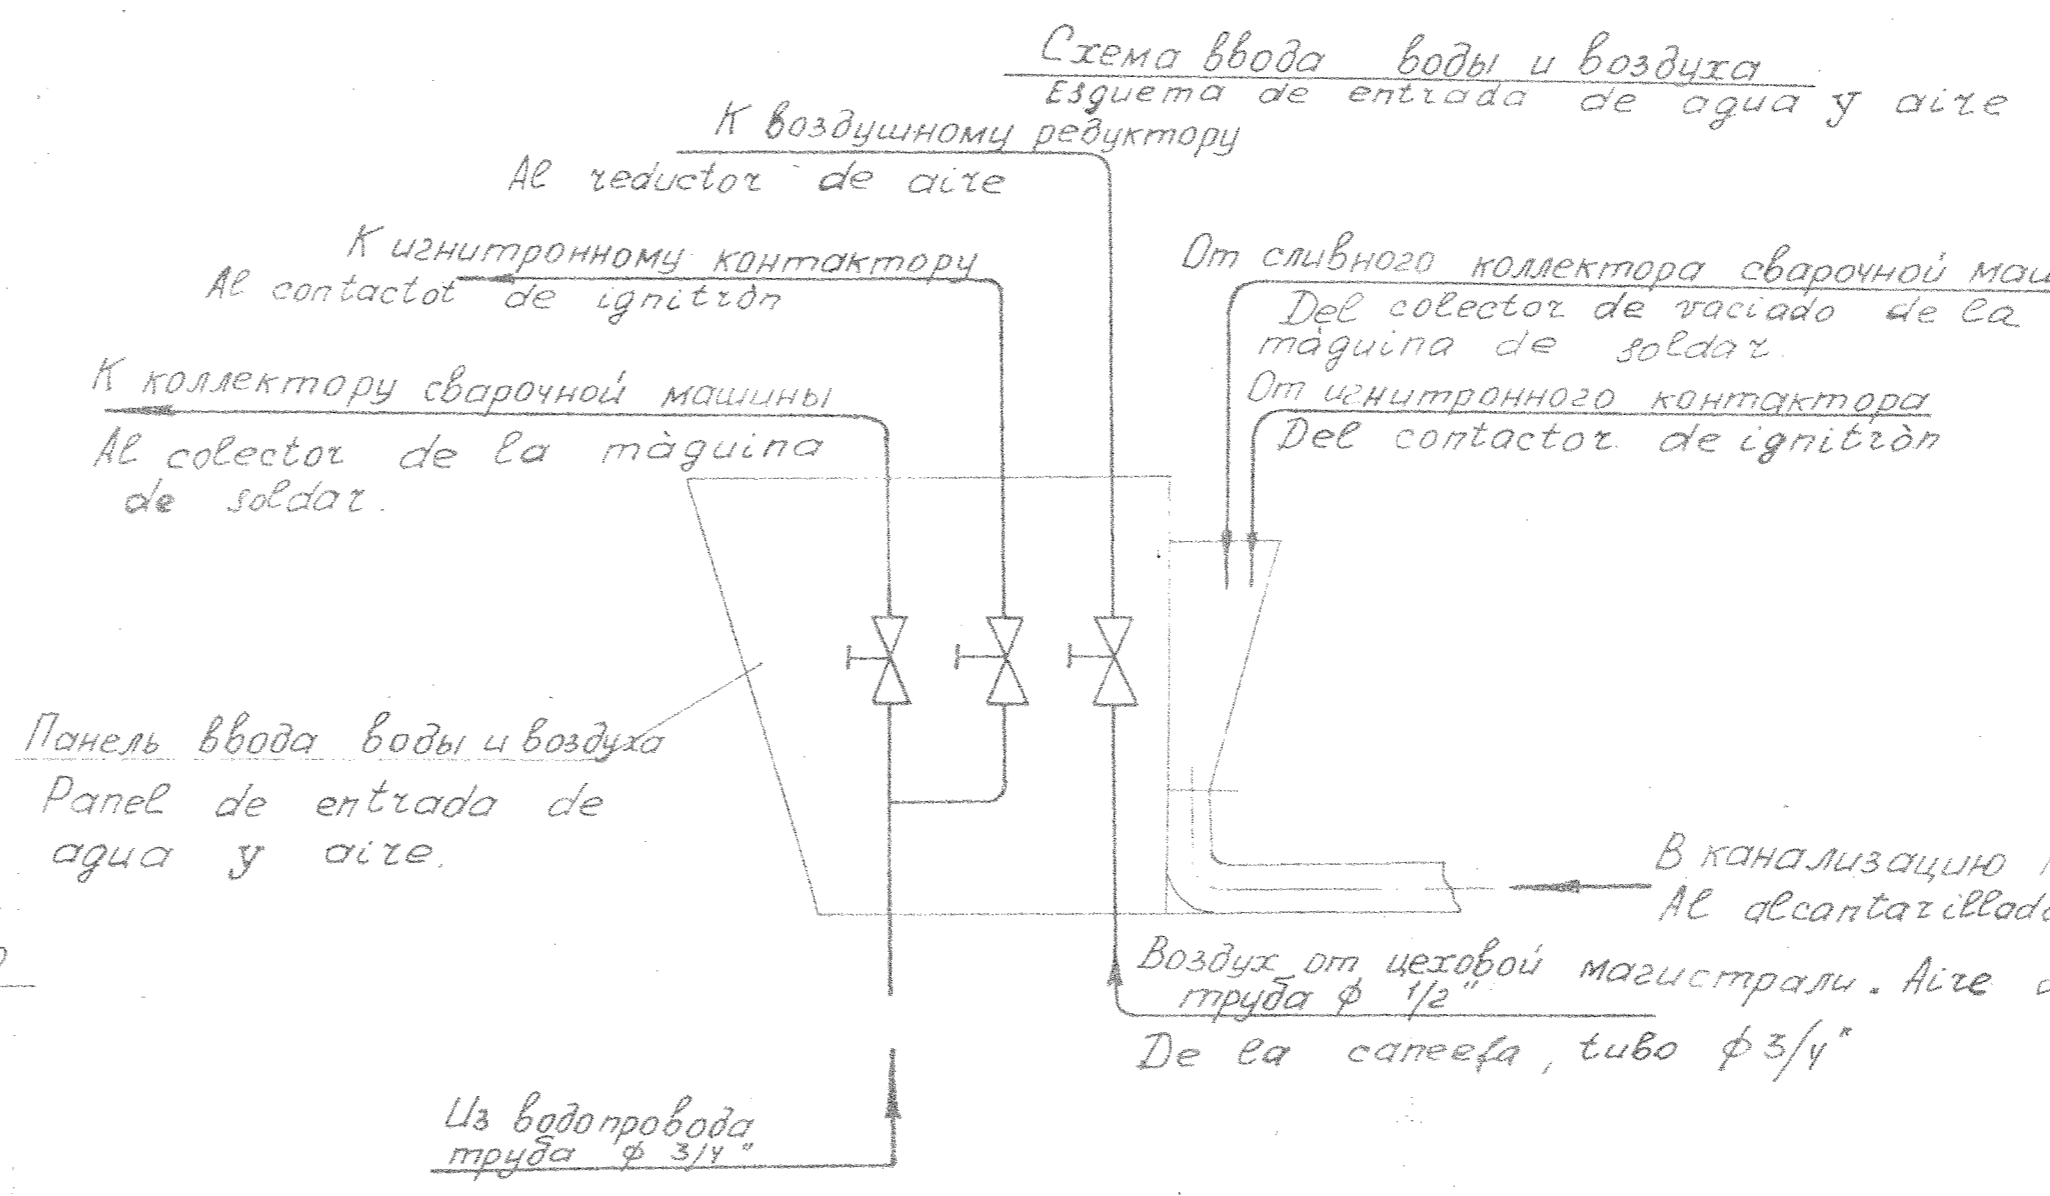 Схема ввода воды и воздуха
Esguema de entrada de agua y aire
К воздушному редуктору
Al reductor de aire
К игнитронному контактору
Al contactot de ignitròn
От сливного коллектора сварочной маш
Del colector de vaciado de la
màguina de soldar.
К коллектору сварочной машины
Al colector de la màguina
de soldar.
От игнитронного контактора
Del contactor de ignitròn
Панель ввода воды и воздуха
Panel de entrada de
agua y aire.
В канализацию
Al alcantarillado
Воздух от цеховой магистрали. Aire
труба ф 1/2"
De la caneefa, tubo ф 3/4"
Из водопровода
труба ф 3/4"